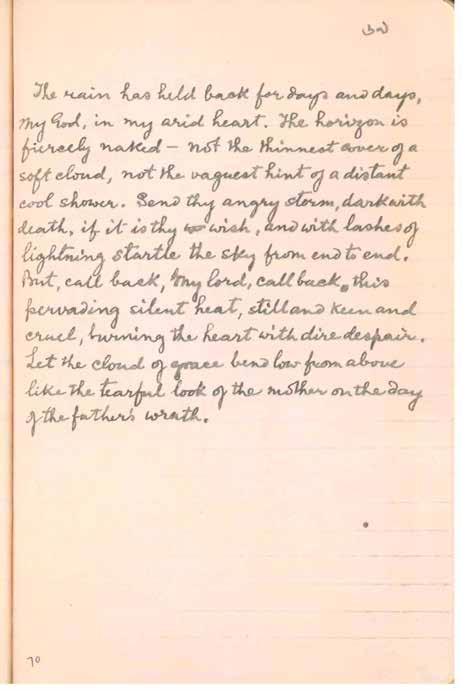 ৩৯
The rain has held back for days and days,
my God, in my arid heart. The horizon is
fiercely naked – not the thinnest cover of a
soft cloud, not the vaguest hint of a distant
cool shower. Send thy angry storm, dark with
death, if it is thy wish, and with lashes of
lightning startle the sky from end to end.
But, call back, my lord, call back, this
pervading silent heat, still and keen and
cruel, burning the heart with dire despair.
Let the cloud of grace bend low from above
like the tearful look of the mother on the day
of the father's wrath.
70